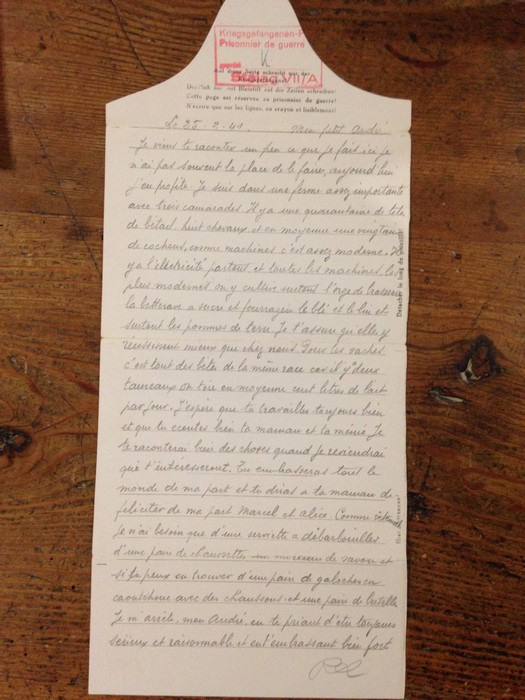 Kriegsgefangenen-P
Prisonnier de guerre
geprüft
Stalag VII/A
Auf diese Seite schreibt nur der
Kriegsgefangene!
Deutlich auf die Zeilen schreiben!
Cette page est réservée au prisonnier de guerre!
N'écrire que sur les lignes, au crayon et lisiblement!
Le 25-2-41. Mon petit André
Je viens te raconter un peu ce que je fais ici je
n'ai pas souvent la place de le faire, aujourd'hui
j'en profite. Je suis dans une ferme assez importante
avec trois camarades. Il y a une quarantaine de tête
de bétail huit chevaux et en moyenne une vingtaine
de cochons, comme machines c'est assez moderne. Il
y a l'électricité partout et toutes les machines les
plus modernes on y cultive surtout l'orge de brasserie
la betterave a sucre et fourragère le blé et le lin et
surtout les pommes de terre. Je t'assure qu'elles y
réussissent mieux que chez nous. Pour les vaches
c'est tout des bêtes de la même race car il y a deux
taureaux on tire en moyenne cent litres de lait
par jour. J'espère que tu travailles toujours bien
et que tu écoutes bien ta maman et ta mémé. Je
te raconterai bien des choses quand je reviendrai
qui t'intéresseront. Tu embrasseras tout le
monde de ma part et tu diras a ta maman de
féliciter de ma part Marcel et Alice. Comme
je n'ai besoin que d'une serviette a débarbouiller
d'une pair de chaussettes un morceau de savon et
si tu peux en trouver d'une pair de galoches en
caoutchouc avec des chaussons et une pair de bretelle
Je m'arrête, mon André, en te priant d'être toujours
sérieux et raisonnable et en t'embrassant bien fort
Détacher le long du pointillé!